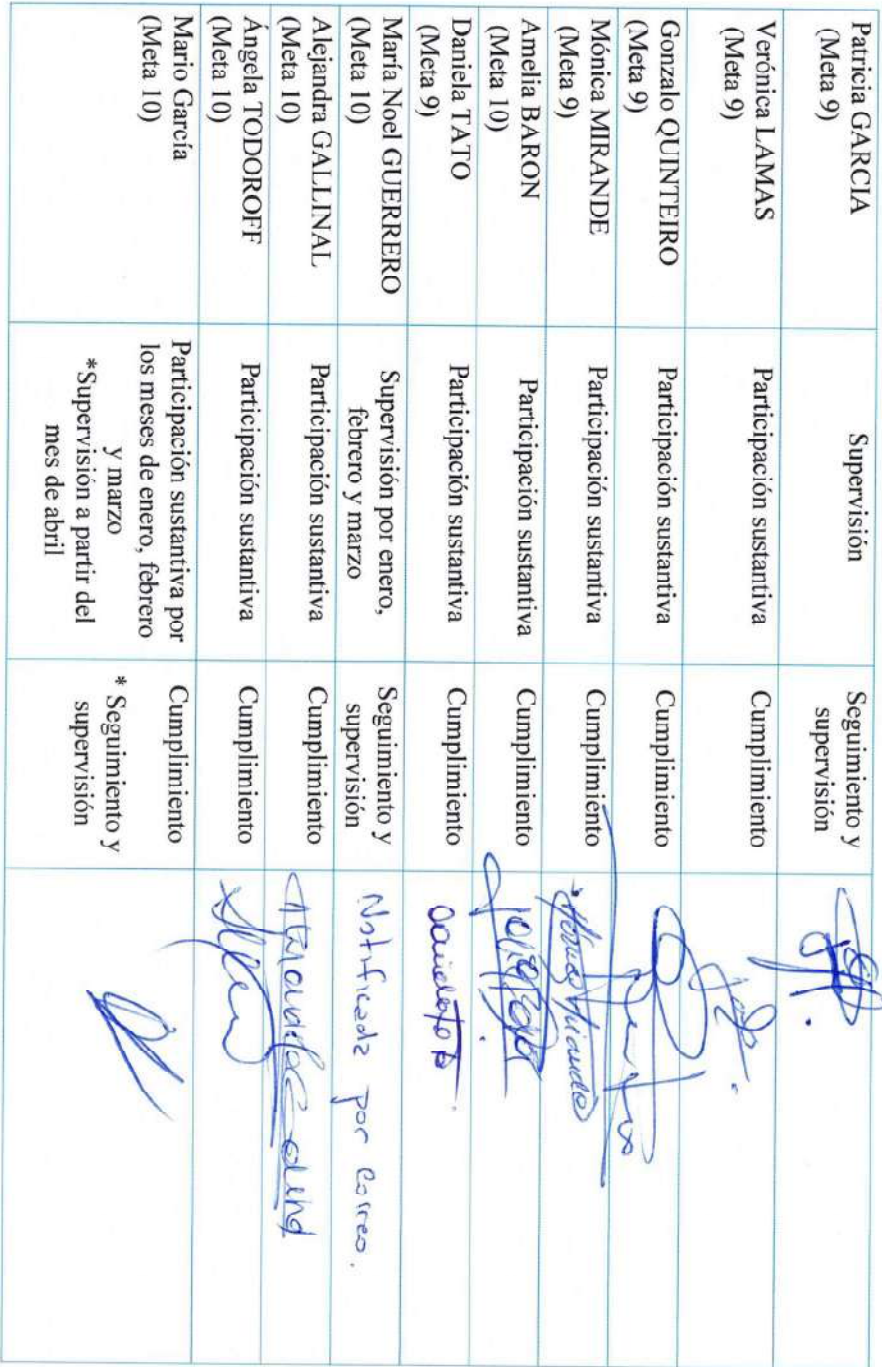 Patricia GARCIA
(Meta 9)
Supervisión
Seguimiento y
supervisión
Verónica LAMAS
(Meta 9)
Participación sustantiva
Cumplimiento
Gonzalo QUINTEIRO
(Meta 9)
Participación sustantiva
Cumplimiento
Mónica MIRANDE
(Meta 9)
Participación sustantiva
Cumplimiento
Amelia BARON
(Meta 10)
Participación sustantiva
Cumplimiento
Daniela TATO
(Meta 9)
Participación sustantiva
Cumplimiento
María Noel GUERRERO
(Meta 10)
Supervisión por enero,
febrero y marzo
Seguimiento y
supervisión
Notificada por correo.
Alejandra GALLINAL
(Meta 10)
Participación sustantiva
Cumplimiento
Ángela TODOROFF
(Meta 10)
Participación sustantiva
Cumplimiento
Mario García
(Meta 10)
Participación sustantiva por
los meses de enero, febrero
y marzo
*Supervisión a partir del
mes de abril
Cumplimiento
* Seguimiento y
supervisión